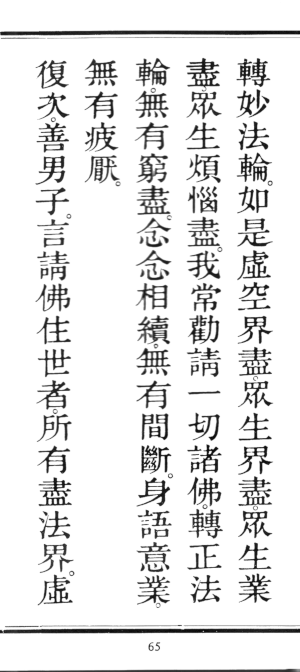 轉妙法輪。如是虛空界盡。眾生界盡。眾生業
盡。眾生煩惱盡。我常勸請一切諸佛。轉正法
輪。無有窮盡。念念相續。無有間斷。身語意業。
無有疲厭。
復次。善男子。言請佛住世者。所有盡法界。虛
65